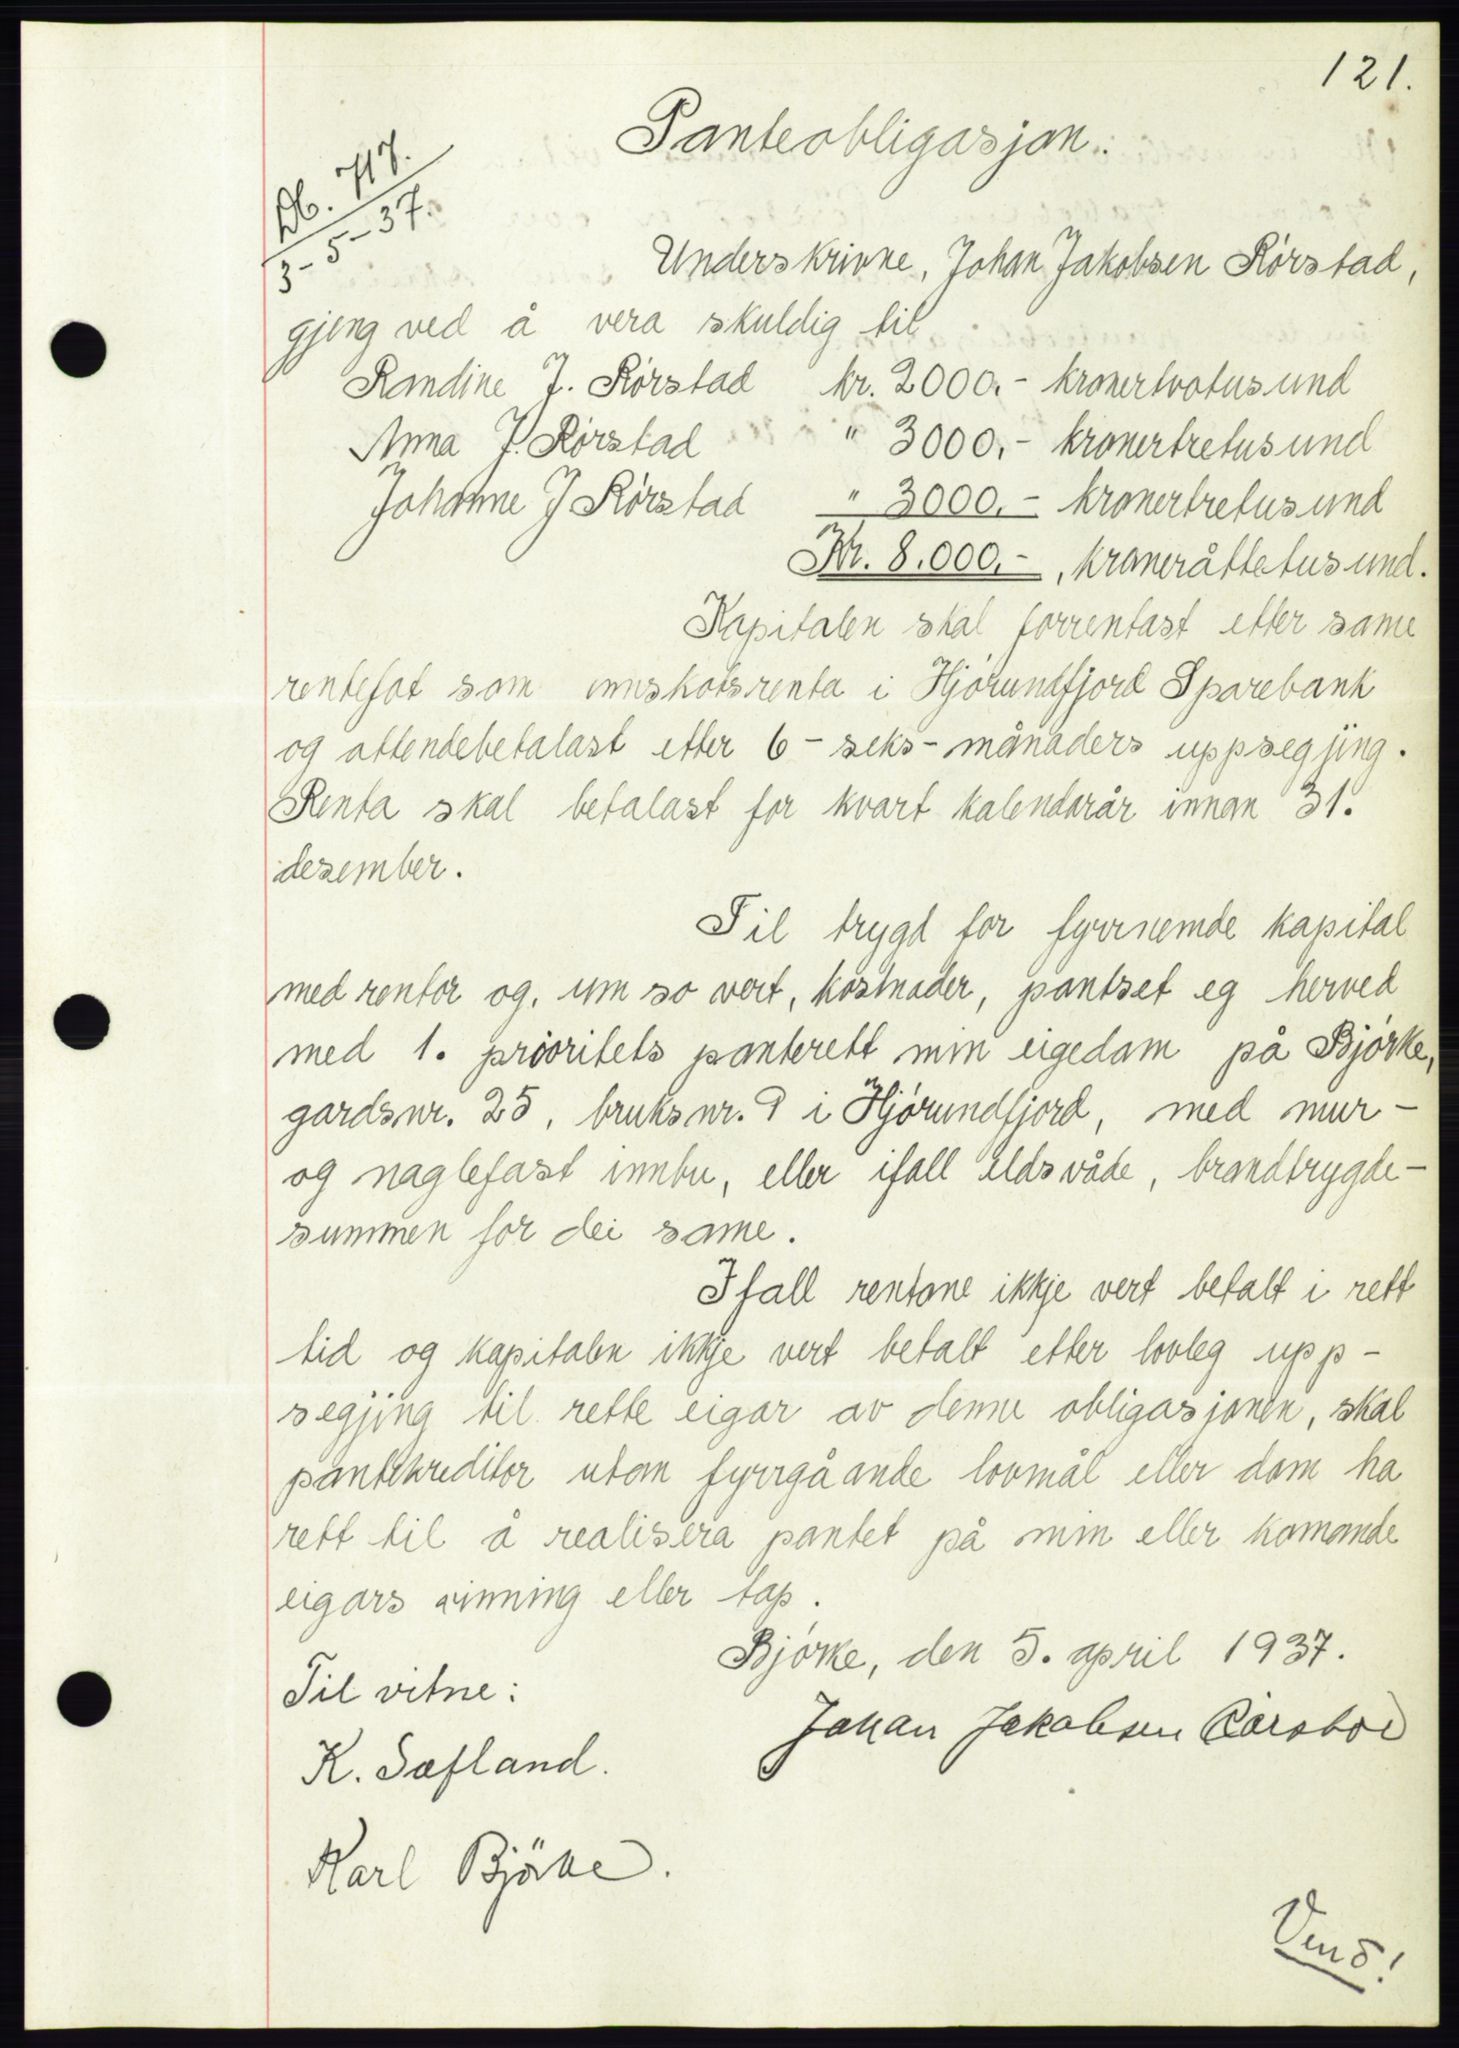 121.
Panteobligasjon.
Db. 717.
3-5-37.
Underskrivne, Johan Jakobsen Rórstad,
gjeng ved å vera skuldig til
Randine J. Rórstad kr. 2000.- kronertvotusund
Anna J. Rórstad " 3000.- kronertretusund
Johanne J Rórstad " 3000.- kronertretusund
Kr. 8.000.-, kroneråttetusund.
Kapitalen skal forrentast etter same
rentefot som innskotsrenta i Hjórundfjord Sparebank
og attendebetalast etter 6 - seks - månaders uppsegjing.
Renta skal betalast for kvart kalendarår innan 31.
desember.
Til trygd for fyrrnemde kapital
med rentor og, um so vert, kostnader, pantset eg herved
med 1. prioritets panterett min eigedom på Bjórke,
gardsnr. 25, bruksnr. 9 i Hjórundfjord, med mur-
og naglefast innbu, eller ifall eldsvåde, brandtrygde-
summen for dei same.
Ifall rentone ikkje vert betalt i rett
tid og kapitalen ikkje vert betalt etter lovleg upp-
segjing til rette eigar av denne obligasjonen, skal
pantekreditor utan fyrrgåande lovmål eller dom ha
rett til å realisera pantet på min eller komande
eigars vinning eller tap.
Bjórke, den 5. april 1937.
Til vitne:
Johan Jakobsen Rörstad
K. Sæfland.
Karl Björke.
Vend!